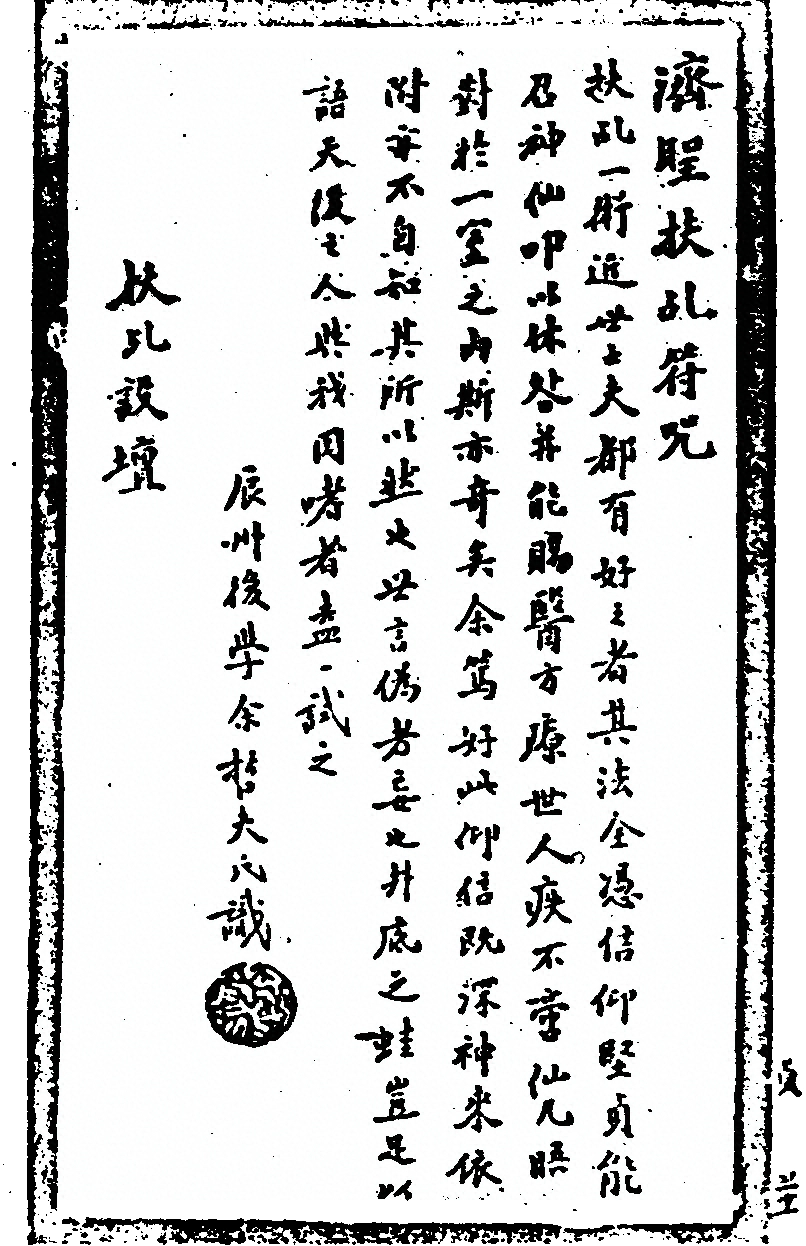 濟聖扶乩符咒
扶乩一術近世士夫都有好之者其法全憑信仰堅貞能
召神仙叩以休咎并能賜醫方療世人疾不啻仙凡晤
對於一室之內斯亦奇矣余篤好此仰信既深神來依
附亦不自知其所以然也世言偽者妄也井底之蛙豈足以
語天後之人與我同嗜者盍一試之
辰州後學余哲夫氏識
扶乩設壇